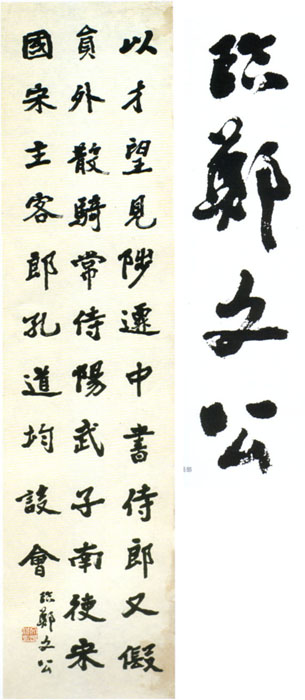 临鄭文公
以才望見陟遷中書侍郎又假
員外散騎常侍陽武子南使宋
國宋主客郎孔道均設會
临鄭文公